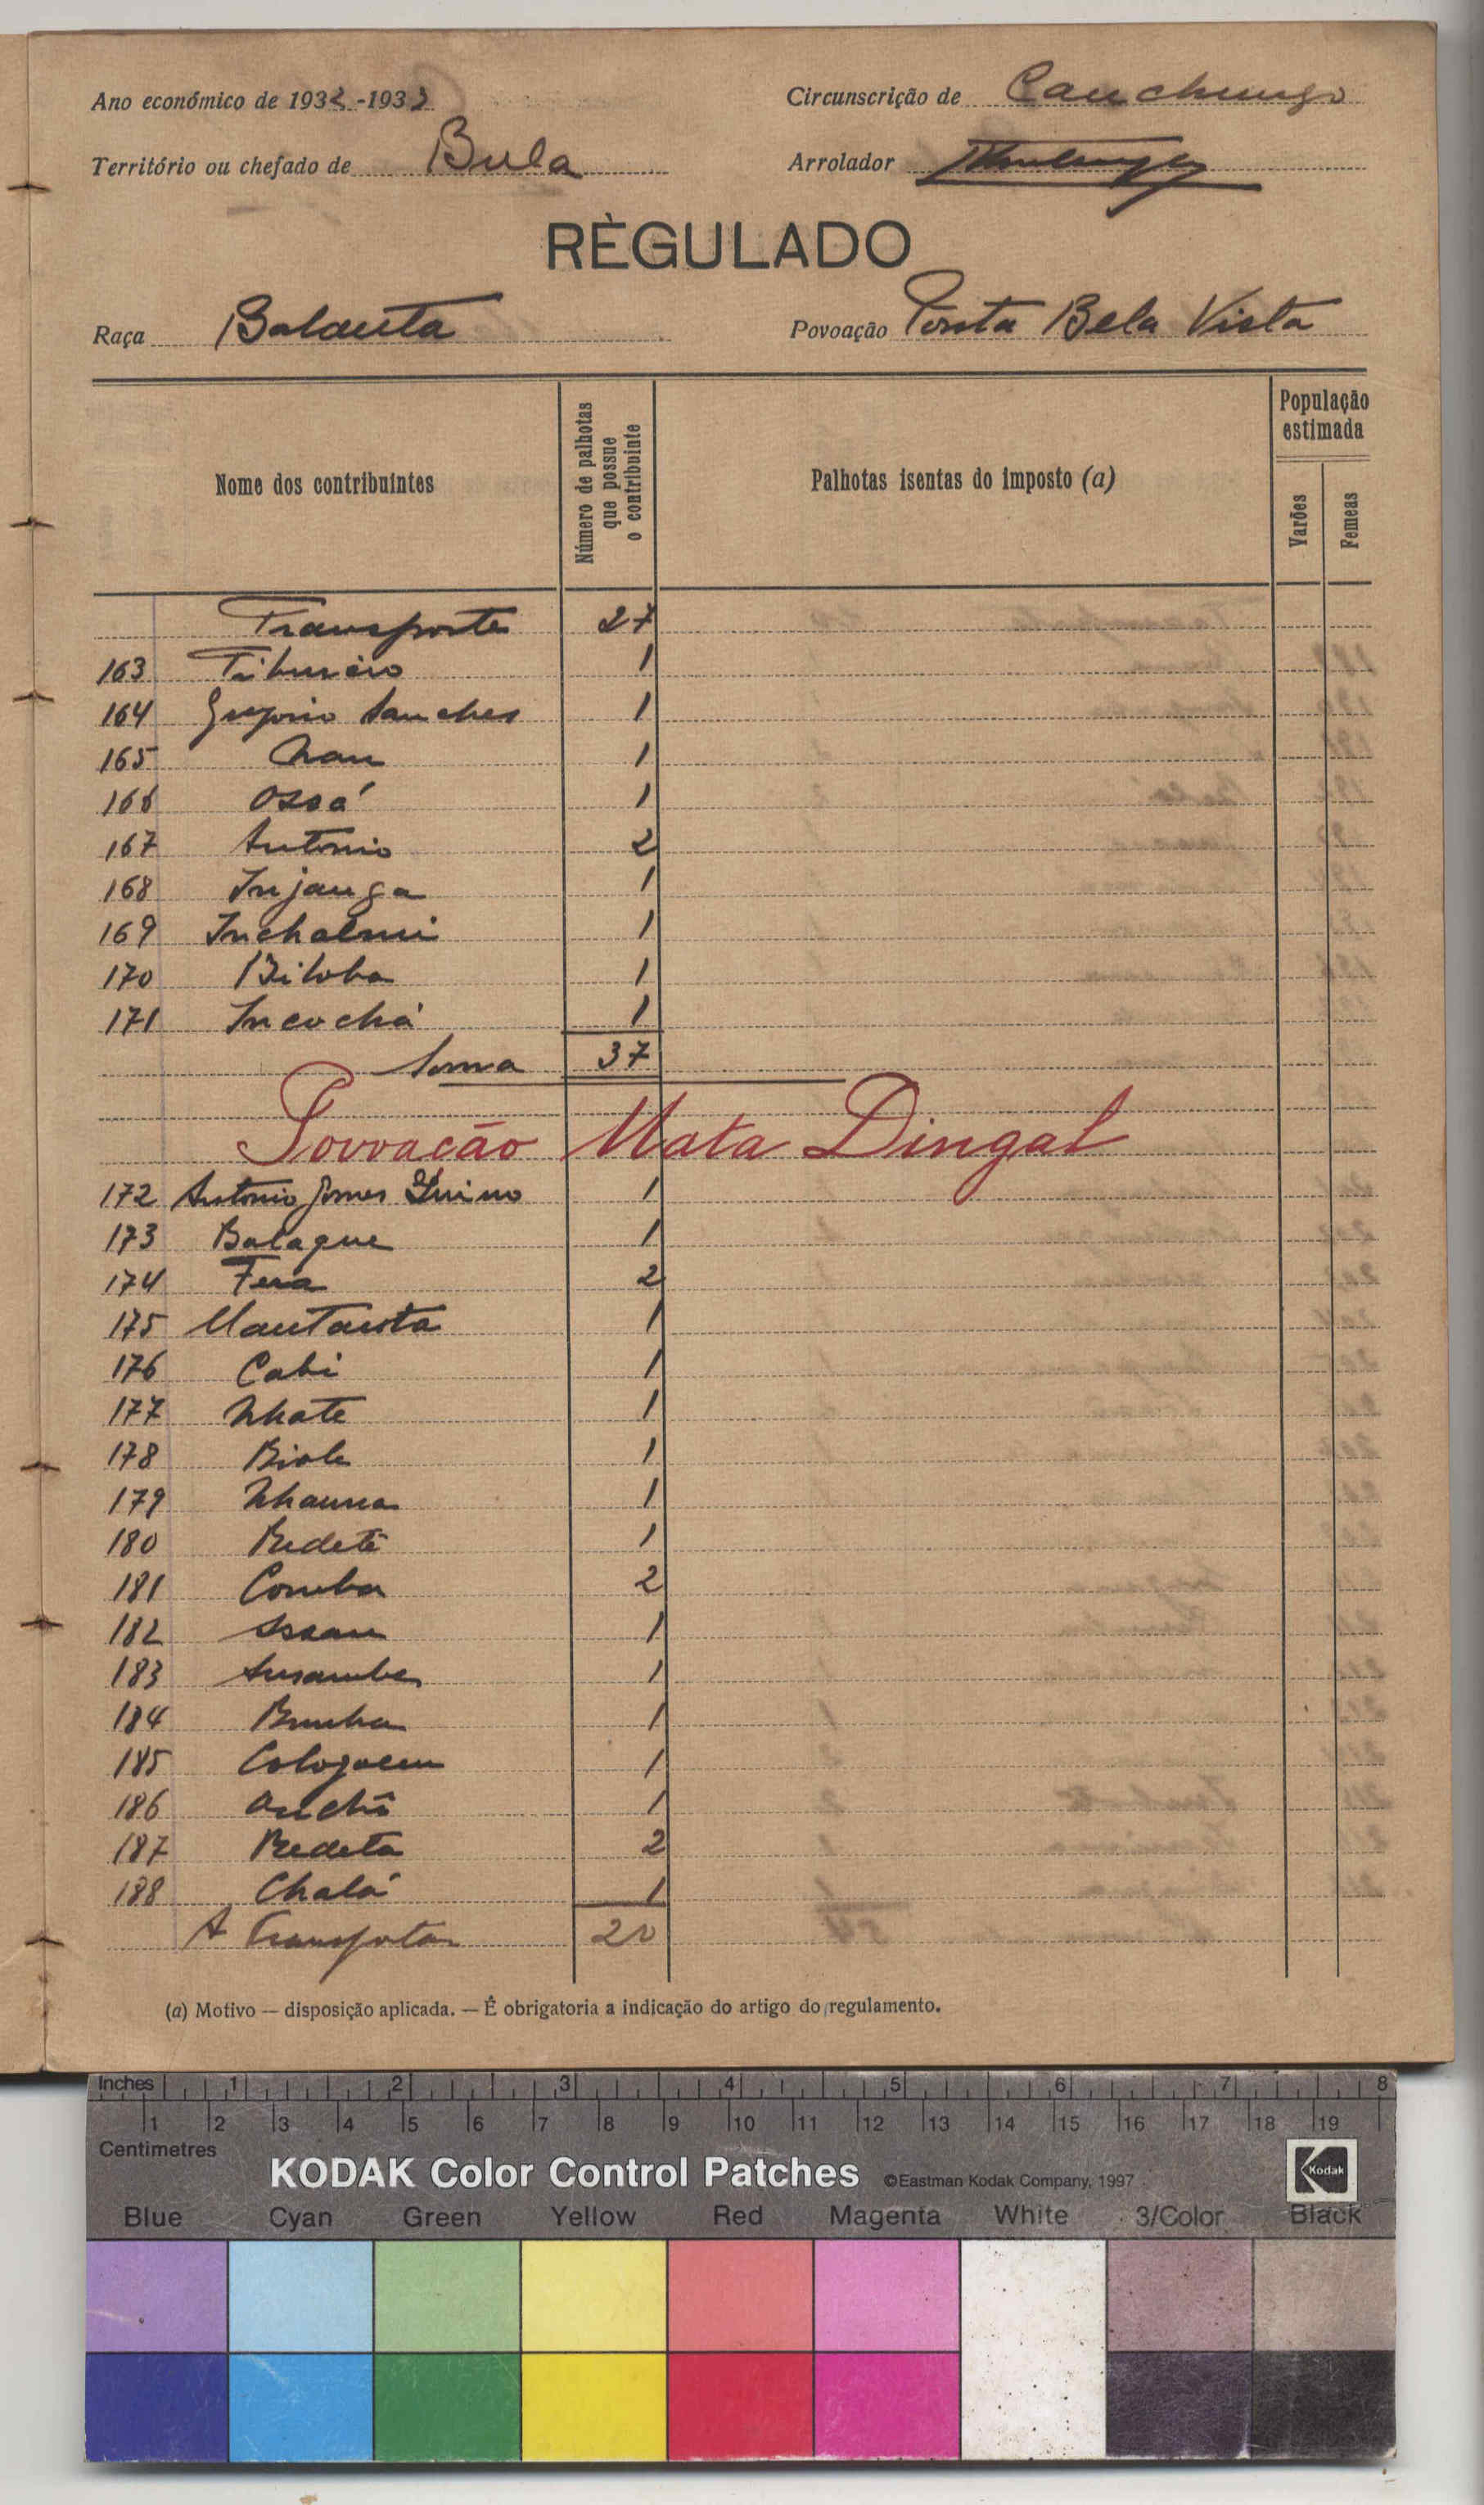 Ano económico de 1932-1933
Circunscrição de Canchungo
Território ou chefado de Bula
Arrolador
RÈGULADO
Raça Balanta
Povoação Ponta Bela Vista
Nome dos contribuintes
Número de palhotas que possue o contribuinte
Palhotas isentas do imposto (a)
População estimada
Varões
Femeas
Transporte 27
163 Tiburcio 1
164 Gregorio Sanches 1
165 1
166 Ossá 1
167 Antonio 2
168 Injanga 1
169 1
170 Biloba 1
171 Incochá 1
Soma 37
Povoação Mata Dingal
172 Antonio Gomes 1
173 Balaque 1
174 2
175 1
176 Cabi 1
177 Nhate 1
178 Biole 1
179 1
180 1
181 Comba 2
182 1
183 1
184 1
185 1
186 1
187 2
188 Chalá 1
A Transportar 20
(a) Motivo — disposição aplicada. — É obrigatoria a indicação do artigo do regulamento.
Inches 1 2 3 4 5 6 7 8
1 2 3 4 5 6 7 8 9 10 11 12 13 14 15 16 17 18 19
Centimetres
KODAK Color Control Patches ©Eastman Kodak Company, 1997 Kodak
Blue Cyan Green Yellow Red Magenta White 3/Color Black